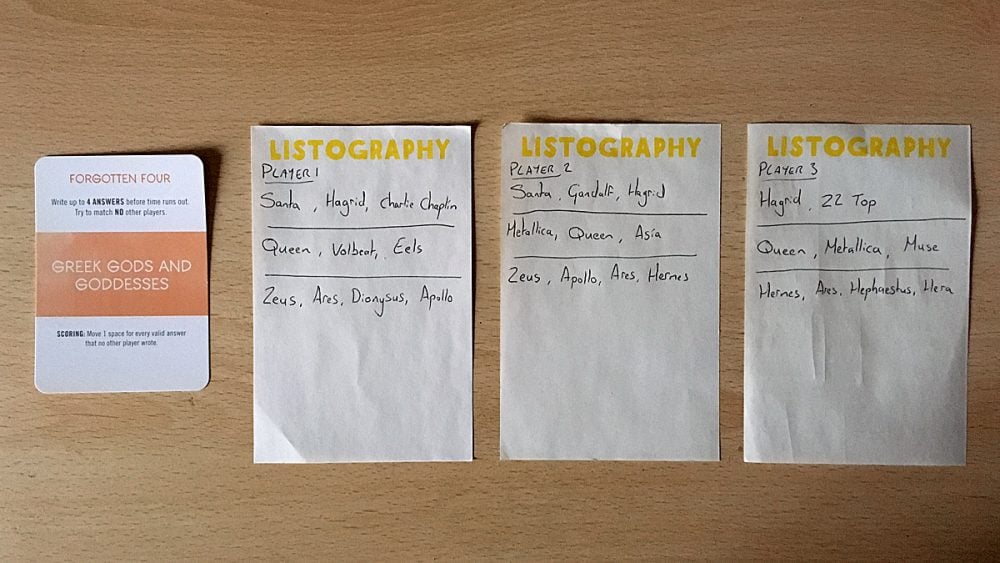 FORGOTTEN FOUR
Write up to 4 ANSWERS before time runs out.
Try to match NO other players.
GREEK GODS AND
GODDESSES
SCORING: Move 1 space for every valid answer
that no other player wrote.
LISTOGRAPHY
PLAYER 1
Santa, Hagrid, Charlie Chaplin
Queen, Volbeat, Eels
Zeus, Ares, Dionysus, Apollo
LISTOGRAPHY
PLAYER 2
Santa, Gandalf, Hagrid
Metallica, Queen, Asia
Zeus, Apollo, Ares, Hermes
LISTOGRAPHY
PLAYER 3
Hagrid, ZZ Top
Queen, Metallica, Muse
Hermes, Ares, Hephaestus, Hera